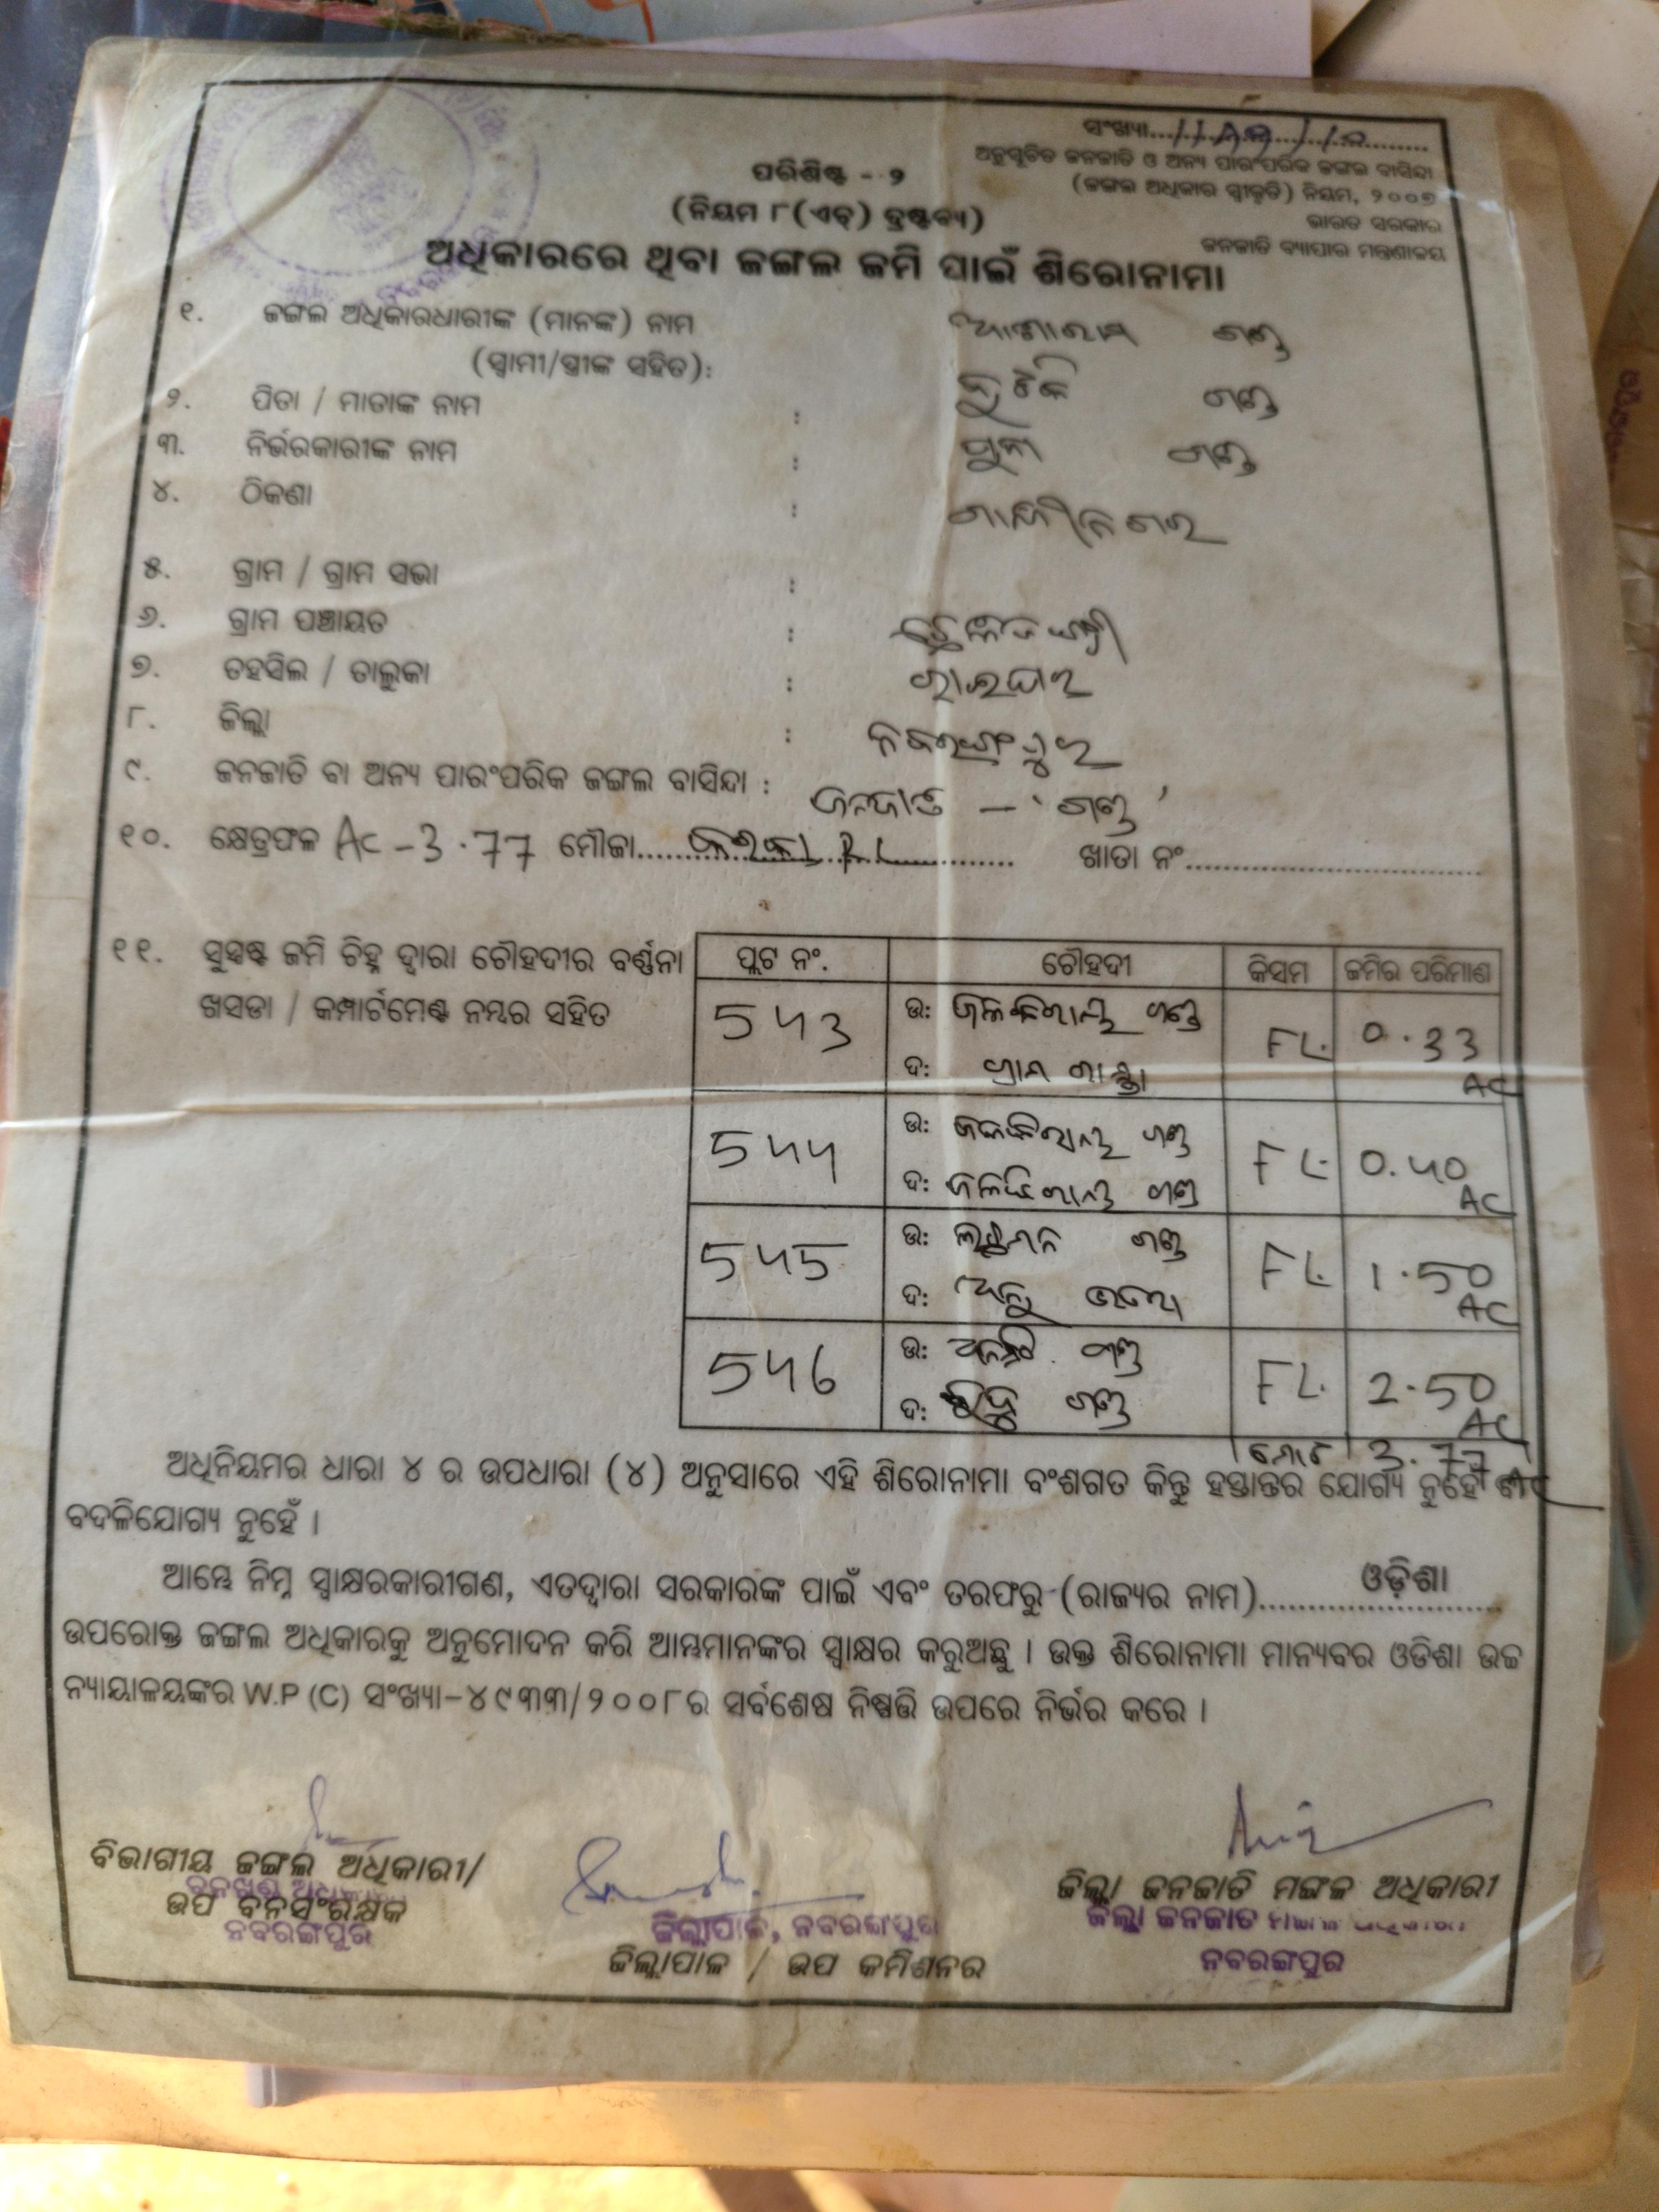 ସଂଖ୍ୟା
ଅନୁସୂଚିତ ଜନଜାତି ଓ ଅନ୍ୟ ପାରଂପରିକ ଜଙ୍ଗଲ ବାସିନ୍ଦା
(ଜଙ୍ଗଲ ଅଧିକାର ସ୍ୱୀକୃତି) ନିୟମ, ୨୦୦୭
ଭାରତ ସରକାର
ଜନଜାତି ବ୍ୟାପାର ମନ୍ତ୍ରଣାଳୟ
ପରିଶିଷ୍ଟ - ୨
(ନିୟମ ୮(ଏଚ୍) ଦ୍ରଷ୍ଟବ୍ୟ)
ଅଧିକାରରେ ଥିବା ଜଙ୍ଗଲ ଜମି ପାଇଁ ଶିରୋନାମା
୧. ଜଙ୍ଗଲ ଅଧିକାରଧାରୀଙ୍କ (ମାନଙ୍କ) ନାମ ଗଣ୍ଡ
(ସ୍ୱାମୀ/ସ୍ତ୍ରୀଙ୍କ ସହିତ):
୨. ପିତା / ମାତାଙ୍କ ନାମ : ଗଣ୍ଡ
୩. ନିର୍ଭରକାରୀଙ୍କ ନାମ : ଗଣ୍ଡ
୪. ଠିକଣା : ଗାନ୍ଧୀନଗର
୫. ଗ୍ରାମ / ଗ୍ରାମ ସଭା :
୬. ଗ୍ରାମ ପଞ୍ଚାୟତ :
୭. ତହସିଲ / ତାଲୁକା : ରାଇଘର
୮. ଜିଲ୍ଲା : ନବରଙ୍ଗପୁର
୯. ଜନଜାତି ବା ଅନ୍ୟ ପାରଂପରିକ ଜଙ୍ଗଲ ବାସିନ୍ଦା : ଜନଜାତି - 'ଗଣ୍ଡ'
୧୦. କ୍ଷେତ୍ରଫଳ AC - 3.77 ମୌଜା ଖାତା ନଂ
୧୧. ସୁସ୍ପଷ୍ଟ ଜମି ଚିହ୍ନ ଦ୍ୱାରା ଚୌହଦୀର ବର୍ଣ୍ଣନା
ଖସଡା / କମ୍ପାର୍ଟମେଣ୍ଟ ନମ୍ବର ସହିତ
ପ୍ଲଟ ନଂ. ଚୌହଦୀ କିସମ ଜମିର ପରିମାଣ
543 ଉ: ଗଣ୍ଡ FL. 0.33
ଦ: ଗ୍ରାମ ରାସ୍ତା AC
544 ଉ: ଗଣ୍ଡ FL. 0.40
ଦ: ଗଣ୍ଡ AC
545 ଉ: ଗଣ୍ଡ FL. 1.50
ଦ: AC
546 ଉ: ଗଣ୍ଡ FL. 2.50
ଦ: ଗଣ୍ଡ AC
ମୋଟ 3.77 AC
ଅଧିନିୟମର ଧାରା ୪ ର ଉପଧାରା (୪) ଅନୁସାରେ ଏହି ଶିରୋନାମା ବଂଶଗତ କିନ୍ତୁ ହସ୍ତାନ୍ତର ଯୋଗ୍ୟ ନୁହେଁ ବା
ବଦଳିଯୋଗ୍ୟ ନୁହେଁ ।
ଆମ୍ଭେ ନିମ୍ନ ସ୍ୱାକ୍ଷରକାରୀଗଣ, ଏତଦ୍ୱାରା ସରକାରଙ୍କ ପାଇଁ ଏବଂ ତରଫରୁ (ରାଜ୍ୟର ନାମ) ଓଡ଼ିଶା
ଉପରୋକ୍ତ ଜଙ୍ଗଲ ଅଧିକାରକୁ ଅନୁମୋଦନ କରି ଆମ୍ଭମାନଙ୍କର ସ୍ୱାକ୍ଷର କରୁଅଛୁ । ଉକ୍ତ ଶିରୋନାମା ମାନ୍ୟବର ଓଡିଶା ଉଚ୍ଚ
ନ୍ୟାୟାଳୟଙ୍କର W.P (C) ସଂଖ୍ୟା-୪୯୩୩/୨୦୦୮ର ସର୍ବଶେଷ ନିଷ୍ପତ୍ତି ଉପରେ ନିର୍ଭର କରେ ।
ବିଭାଗୀୟ ଜଙ୍ଗଲ ଅଧିକାରୀ/
ଉପ ବନସଂରକ୍ଷକ
ନବରଙ୍ଗପୁର
ଜିଲ୍ଲାପାଳ, ନବରଙ୍ଗପୁର
ଜିଲ୍ଲାପାଳ / ଉପ କମିଶନର
ଜିଲ୍ଲା ଜନଜାତି ମଙ୍ଗଳ ଅଧିକାରୀ
ଜିଲ୍ଲା ଜନଜାତି ମଙ୍ଗଳ ଅଧିକାରୀ
ନବରଙ୍ଗପୁର